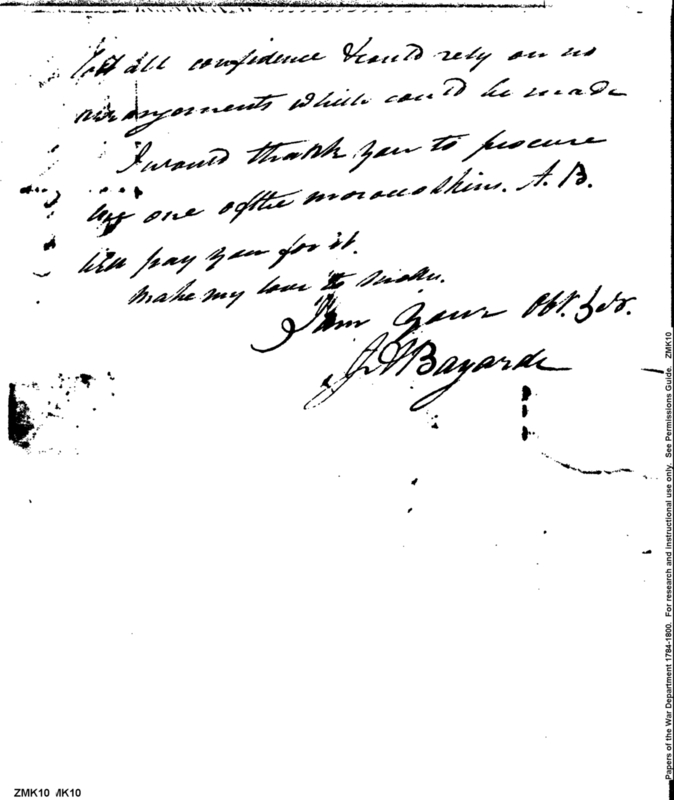 lost all confidence & could rely on no
arrangements which could be made
I would thank you to procure
one of the morocco skins. A. B.
will pay you for it.
make my love to
I am your Obt. Ser.
J A Bayard
Papers of the War Department 1784-1800. For research and instructional use only. See Permissions Guide. ZMK10
ZMK10 /IK10